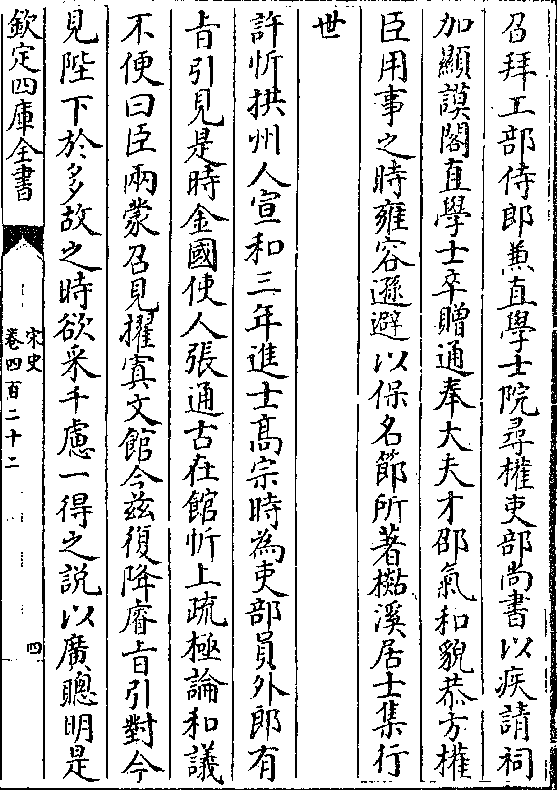 召拜工部侍郎兼直學士院尋權吏部尚書以疾請祠
加顯謨閣直學士卒贈通奉大夫才邵氣和貌恭方權
臣用事之時雍容遜避以保名節所著檆溪居士集行
世
許忻拱州人宣和三年進士高宗時為吏部員外郎有
旨引見是時金國使人張通古在館忻上疏極論和議
不便曰臣兩蒙召見擢寘文館今兹復降睿旨引對今
見陛下於多故之時欲采千慮一得之説以廣聰明是
欽定四庫全書
宋史
卷四百二十二
四